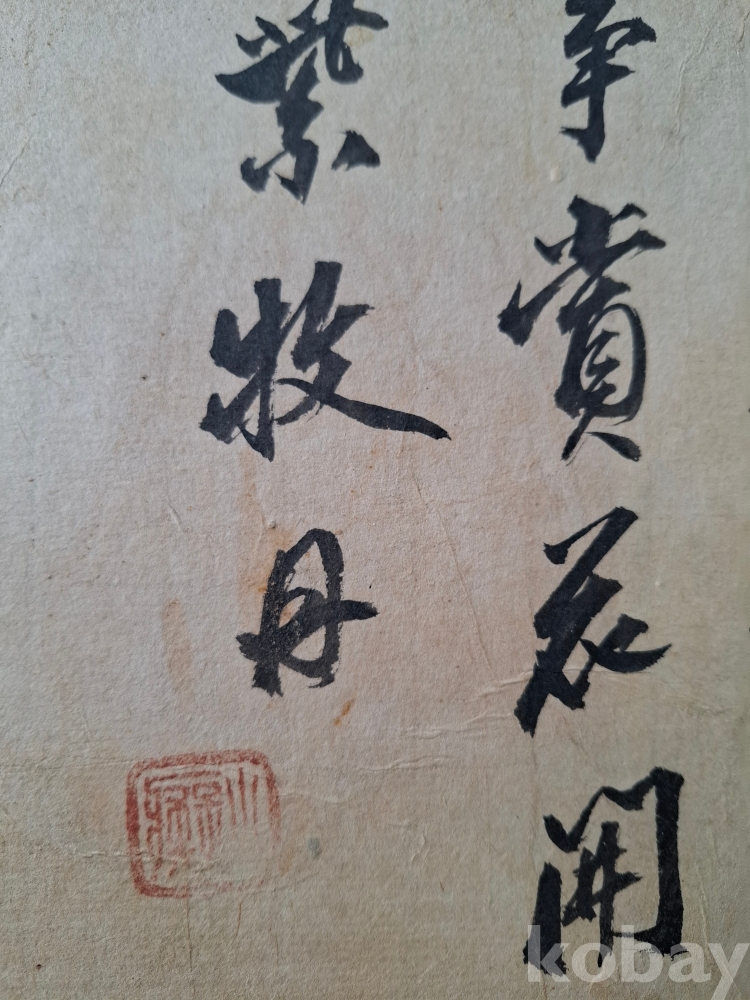 爭賞花開
紫牧丹
kobay